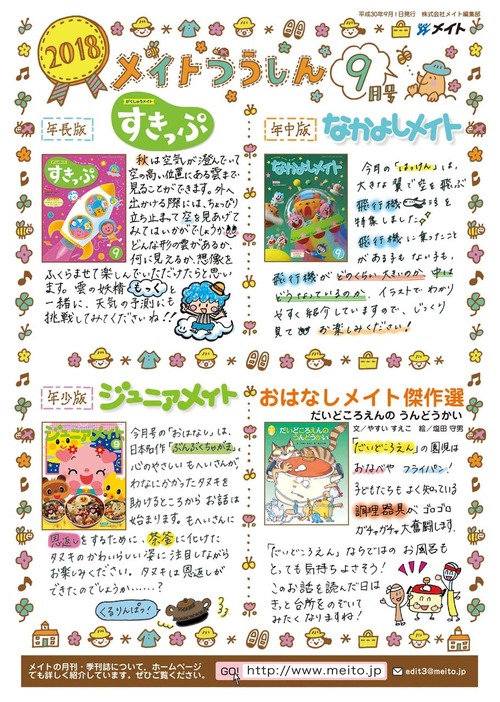 平成30年9月1日発行 株式会社メイト編集部
2018
メイトつうしん 9月号
メイト
年長版
がくしゅうメイト
すきっぷ
すきっぷ
9
秋は空気が澄んでいて
空の高い位置にある雲まで
見ることができます。外へ
出かける際には、ちょっぴり
立ち止まって空を見あげて
みてはいかがでしょうか
どんな形の雲があるか、
何に見えるか、想像を
ふくらませて楽しんでいただけたらと思い
ます。雲の妖精「もっく」と
一緒に、天気の予測にも
挑戦してみてくださいね!!
年中版
なかよしメイト
なかよしメイト
9
今月の「はっけん」は、
大きな翼で空を飛ぶ
飛行機を
特集しました。
飛行機に乗ったこと
があるも、ないも、
飛行機がどのくらい大きいのか、中は
どうなっているのか、イラストでわかり
やすく紹介していますので、じっくり
見てお楽しみください!
年少版
ジュニアメイト
ジュニアメイト
9
今月号の「おはなし」は、
日本名作「ぶんぶくちゃがま」。
心のやさしいもへいさんが、
わなにかかったタヌキを
助けるところからお話は
始まります。もへいさんに
恩返しをするために、茶釜に化けた
タヌキのかわいらしい姿に注目しながら
お楽しみください。タヌキは恩返しが
できたのでしょうか……?
くるりんぱっ!
おはなしメイト傑作選
だいどころえんの うんどうかい
文/やすい すえこ 絵/塩田 守男
だいどころえんの
うんどうかい
「だいどころえん」の園児は
おなべや フライパン!
子どもたちもよく知っている
調理器具が ゴロゴロ
ガチャガチャ大奮闘します。
「だいどころえん」ならではの お風呂も
とっても気持ちよさそう!
このお話を読んだ日は
きっと台所をのぞいて
みたくなりますね!
メイトの月刊・季刊誌について、ホームページ
でも詳しく紹介しています。ぜひご覧ください。
GO! http://www.meito.jp
edit3@meito.jp